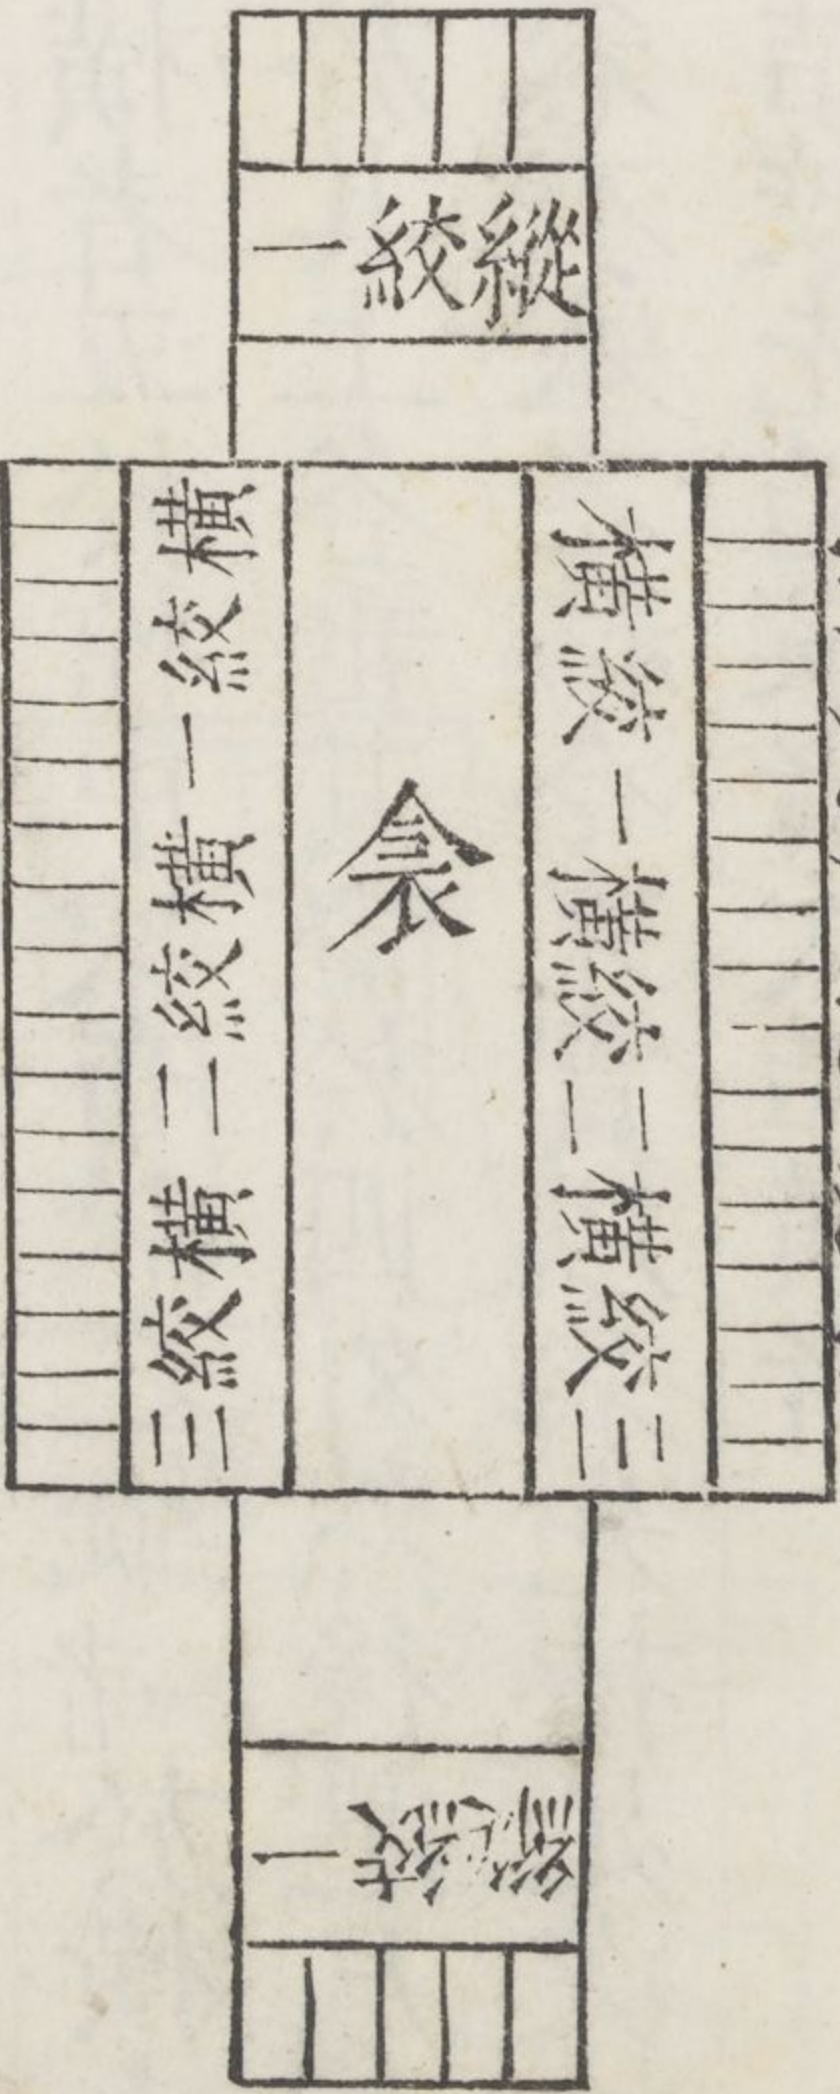 縱絞一
橫絞一橫絞二橫絞三
衾
橫絞一橫絞二橫絞三
縱絞一